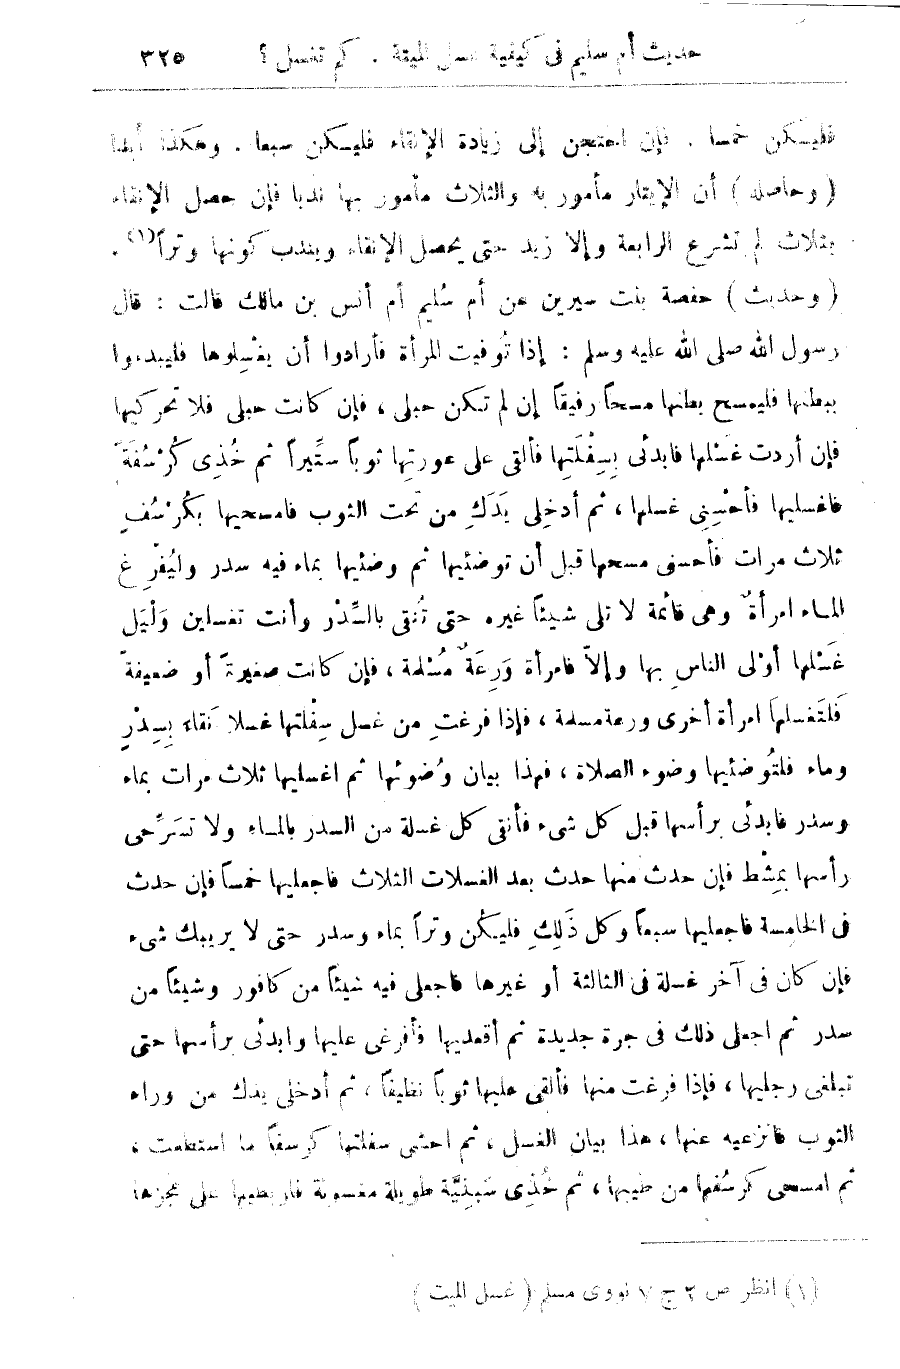 حديث أم سليم فى كيفية غسل الميتة . كم تغسل ؟ ٣٢٥
فليكن خمسا . فإن احتجن إلى زيادة الإنقاء فليكن سبعا . وهكذا أبدا
( وحاصله ) أن الإيتار مأمور به والثلاث مأمور بها ندبا فإن حصل الإنقاء
بثلاث لم تشرع الرابعة وإلا زيد حتى يحصل الإنقاء ويندب كونها وتراً(١) .
( وحديث ) حفصة بنت سيرين عن أم سُليم أم أنس بن مالك قالت : قال
رسول الله صلى الله عليه وسلم : إذا تُوفيت المرأة فأرادوا أن يغسِلوها فليبدءوا
ببطنها فليمسح بطنها مسحاً رفيقاً إن لم تكن حبلى ، فإن كانت حبلى فلا تحركيها
فإن أردت غَسْلها فابدئى بِسِفْلَتِها فألقى على عورتِها ثوباً ستِّيراً ثم خُذِى كُرْسُفَةً
فاغسليها فأحْسِنِى غسلها ، ثم أدخِلى يَدَكِ من تحت الثوب فامسحيها بكُرْسُفٍ
ثلاث مرات فأحسنى مسحها قبل أن توضئيها ثم وضئيها بماء فيه سدر وليُفْرِغ
الماء امرأةٌ وهى قائمة لا تلى شيئاً غيره حتى تُنقى بالسِّدْر وأنت تغسلين وَلْيَل
غَسْلها أوْلى الناسِ بها وإلاّ فامرأة وَرِعَةٌ مُسْلمة ، فإن كانت صغيرةً أو ضعيفةً
فَلتَغسلها امرأة أخرى ورعة مسلمة ، فإذا فرغتِ من غسل سِفْلتها غسلا نقاءً بِسِدْرٍ
وماء فلتُوضئيها وضوء الصلاة ، فهذا بيان وُضوئها ثم اغسليها ثلاث مرات بماء
وسدر فابدئى برأسها قبل كل شىء فأنقى كل غسلة من السدر بالماء ولا تسَرِّحى
رأسها بمِشْط فإن حدث منها حدث بعد الغسلات الثلاث فاجعليها خمساً فإن حدث
فى الخامسة فاجعليها سبعاً وكل ذَلِكِ فليكُن وتراً بماء وسدر حتى لا يريبك شىء
فإن كان فى آخر غسلة فى الثالثة أو غيرها فاجعلى فيه شيئاً من كافور وشيئاً من
سدر ثم اجعلى ذلك فى جرة جديدة ثم أقعديها فأفرغى عليها وابدئى برأسها حتى
تبلغى رجليها ، فإذا فرغت منها فألقى عليها ثوباً نظيفاً ، ثم أدخلى يدك من وراء
الثوب فانزعيه عنها ، هذا بيان الغسل ، ثم احشى سفلتها كرسفاً ما استطعت ،
ثم امسحى كرسُفها من طيبها ، ثم خُذِى سَبَنِيَّة طويلة مغسولة فاربطيها على عجزها
(١) انظر ص ٢ ج ٧ نووى مسلم ( غسل الميت )